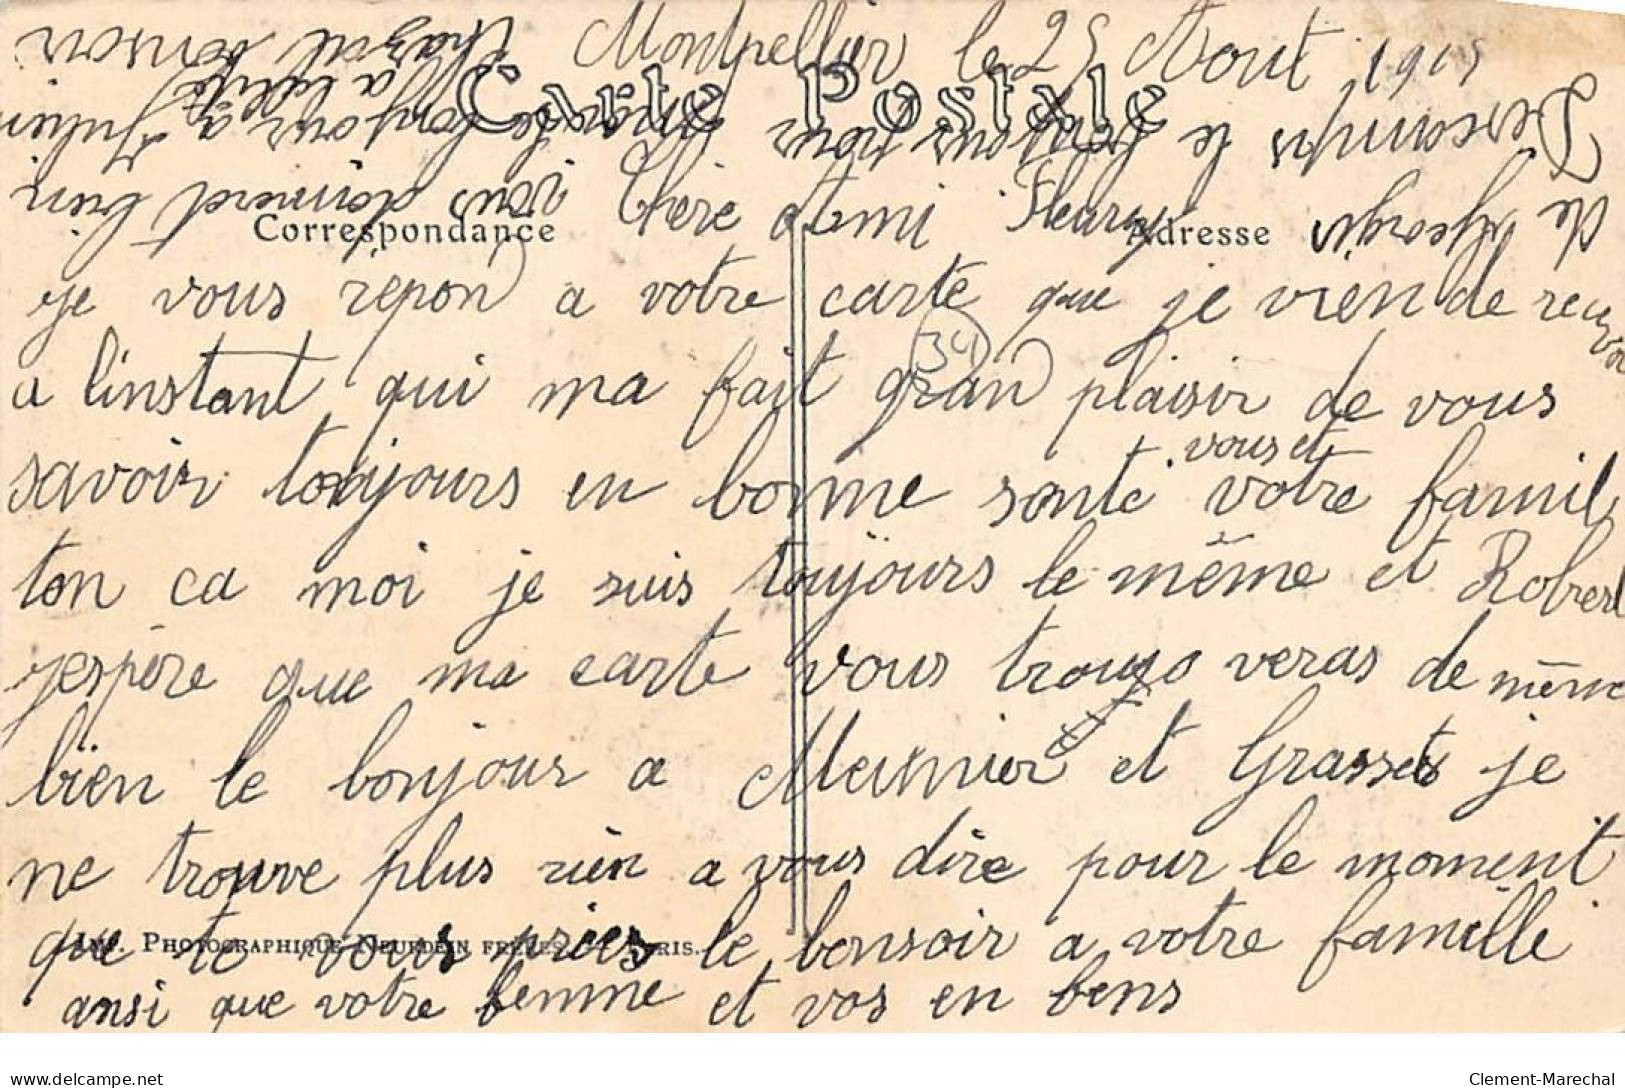 Montpellier le 25 Aout 1915
Carte Postale
Chère Ami Fleury
Correspondance
Adresse
je vous répond a votre carte que je vien de recevoir
34
a linstant qui ma fait grand plaisir de vous
savoir toujours en bonne santé vous et votre famil
ton ca moi je suis toujours le même et Robert
jespère que ma carte vous trouvo veras de même
bien le bonjour a Meunier et Grasset je
ne trouve plus rien a vous dire pour le moment
que te vous pries le bonsoir a votre famille
Imp. Photographique Neurdein frères. — Paris.
ansi que votre femme et vos en bens
vous donneret bien
de
le bonjour a Julien
delcampe.net
Clement-Marechal